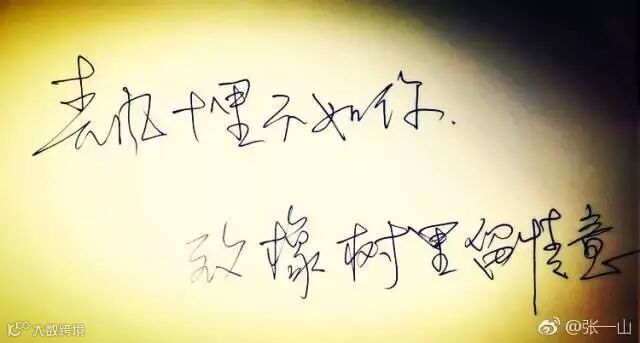 春风十里不如你.
致橡树里留情意
大数跨境
@张一山